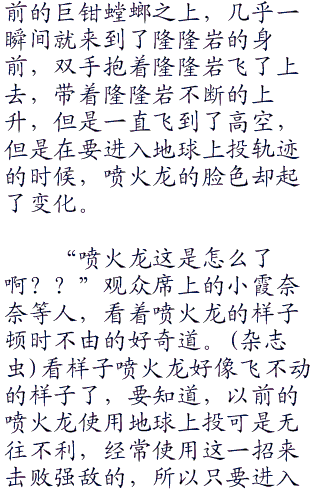 前的巨钳螳螂之上，几乎一
瞬间就来到了隆隆岩的身
前，双手抱着隆隆岩飞了上
去，带着隆隆岩不断的上
升，但是一直飞到了高空，
但是在要进入地球上投轨迹
的时候，喷火龙的脸色却起
了变化。
“喷火龙这是怎么了
啊？？”观众席上的小霞奈
奈等人，看着喷火龙的样子
顿时不由的好奇道。(杂志
虫)看样子喷火龙好像飞不动
的样子了，要知道，以前的
喷火龙使用地球上投可是无
往不利，经常使用这一招来
击败强敌的，所以只要进入